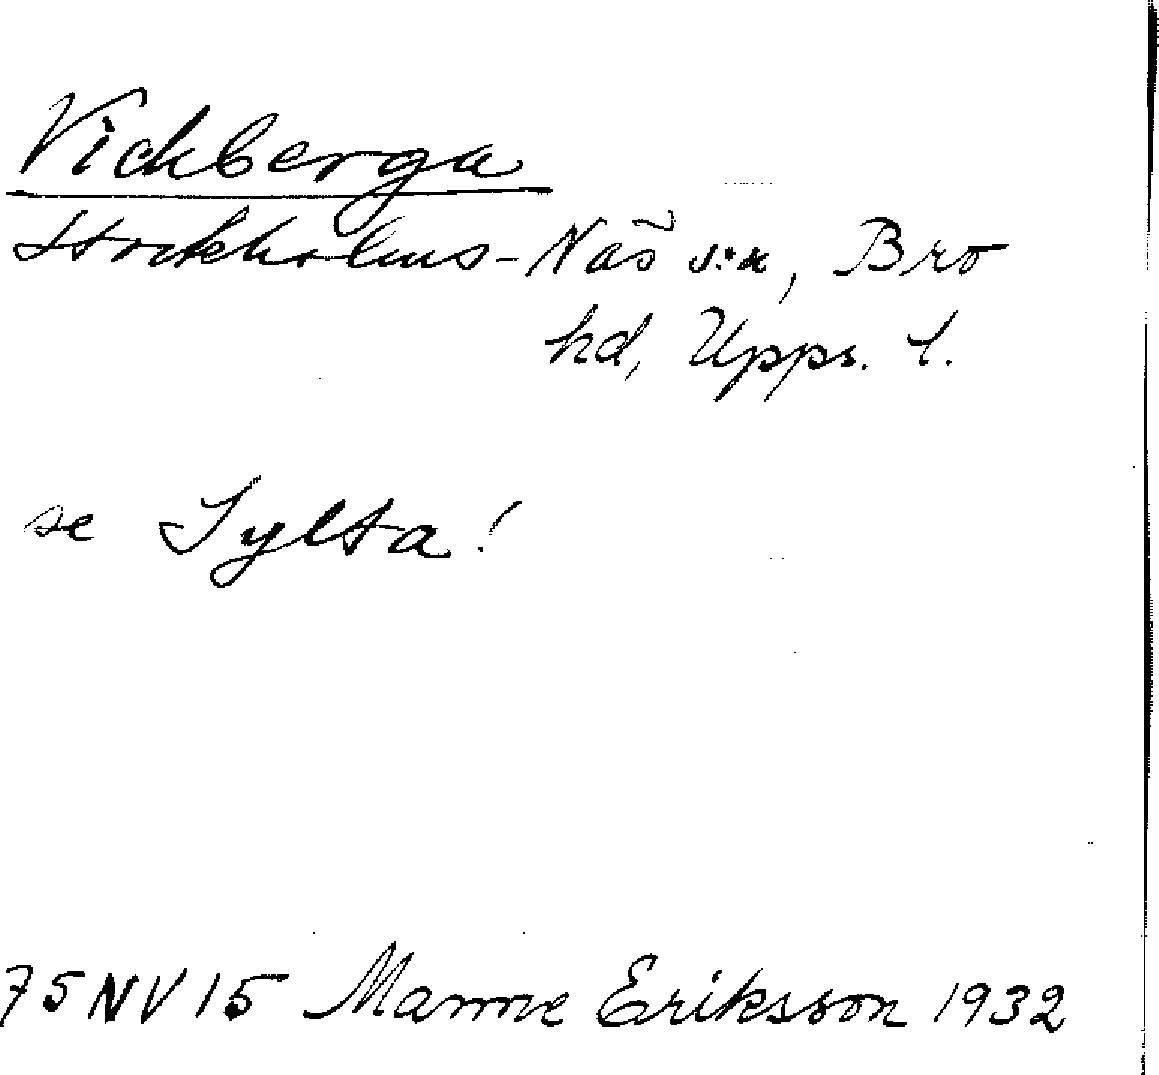 Vickberga
Stockholms-Näs s:n, Bro
hd, Upps. l.
se Sylta!
75NV15 Manne Eriksson 1932